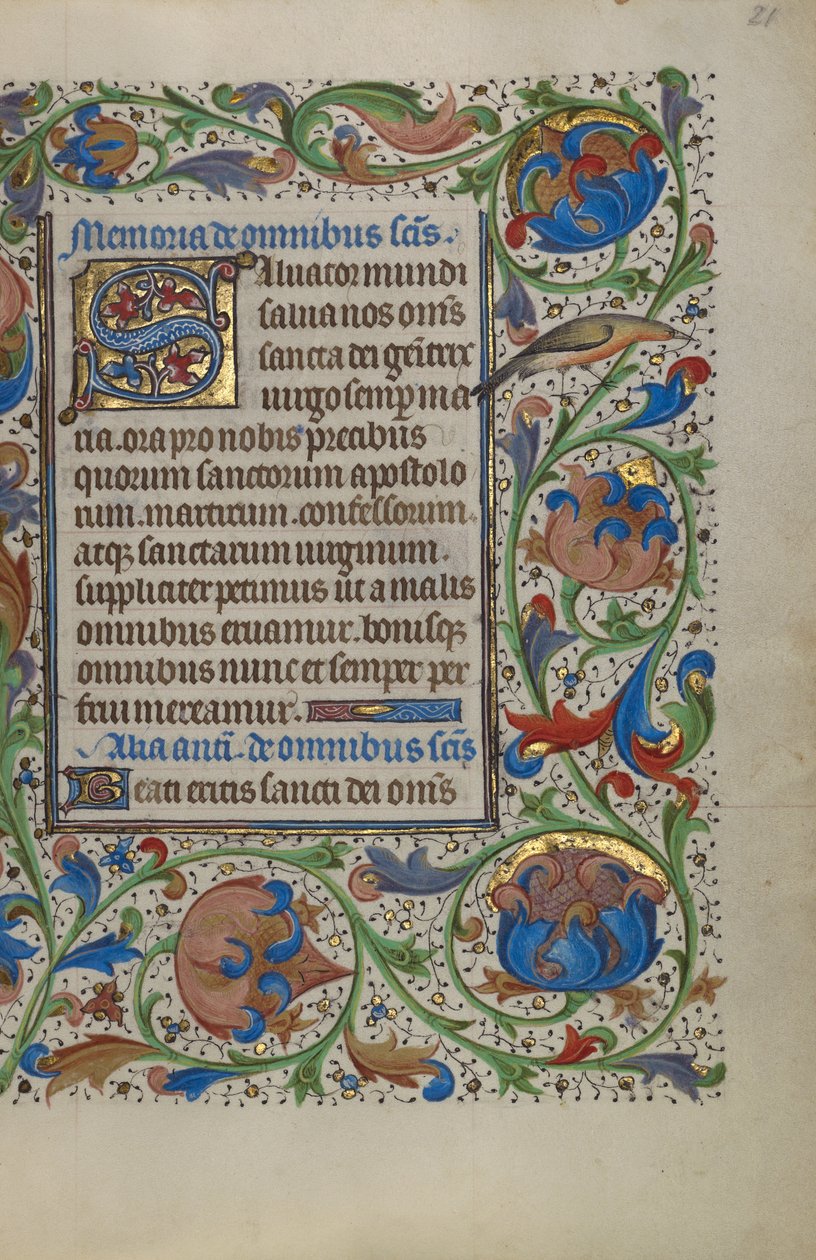 21
Memoria de omnibus scīs.
Saluator mundi
salua nos oīns
sancta dei geītrix
uirgo semp̱ ma
ria. ora pro nobis precibus
quorum sanctorum apostolo
rum. martirum. confessorum.
atqꝫ sanctarum uirginum.
suppliciter petimus ut a malis
omnibus eruamur. bonisqꝫ
omnibus nunc et semper per
frui mereamur.
Alia antī. de omnibus scīs
Beati eritis sancti dei omīs